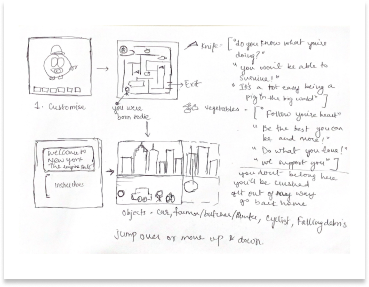 1. Customise
you were
born to die
Exit
Knife - ["do you know what you're
doing?"
"you won't be able to
survive!"
"It's a not easy being a
pig in the big world"]
vegetables - ["Follow your heart"
"Be the best you can
be and more!"
"Do what you love!"
"we support you"]
you don't belong here
you'll be crushed
get out of my way
go back home
Welcome to
New York
The Empire State
Instructions
Objects - car, farmer/butcher/hunter, cyclist, Falling debris
Jump over or move up & down.